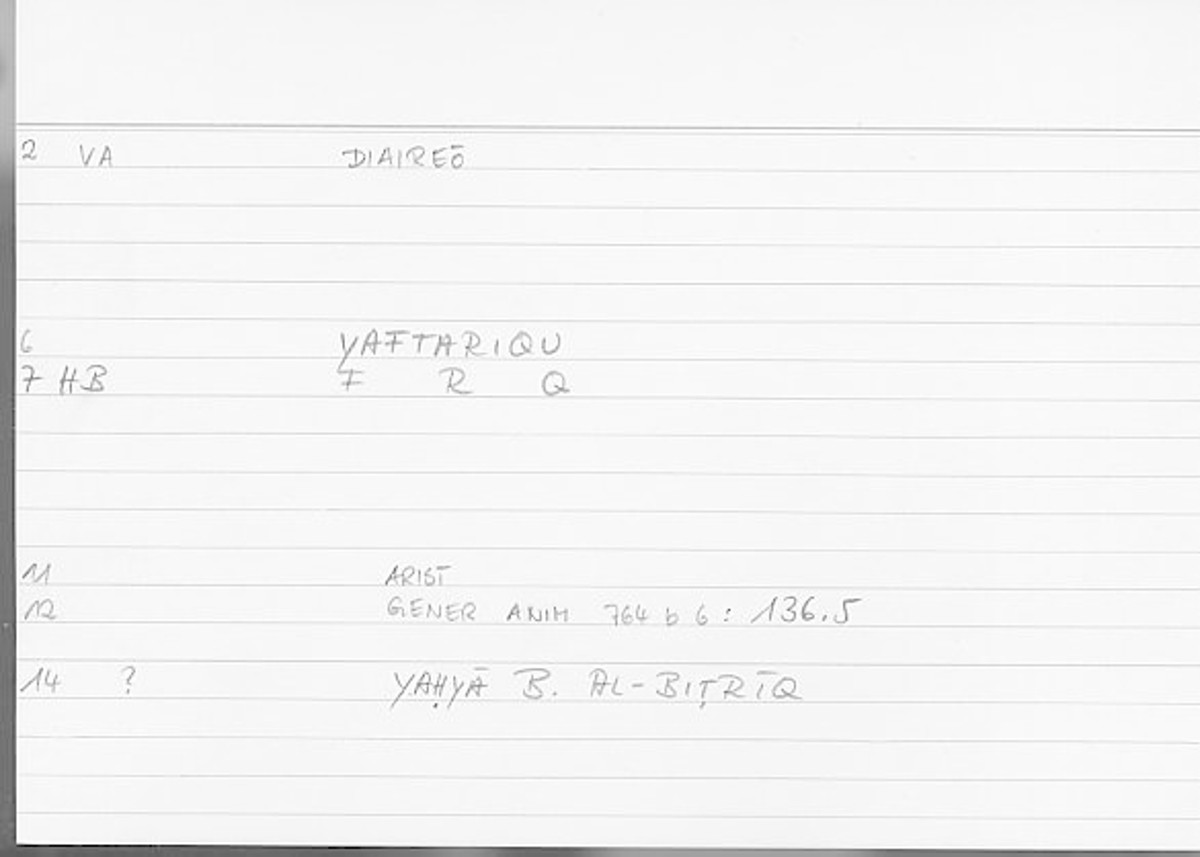 2 VA DIAIREŌ
6 YAFTARIQU
7 HB F R Q
11 ARIST
12 GENER ANIM 764 b 6 : 136.5
14 ? YAḤYĀ B. AL-BIṬRĪQ